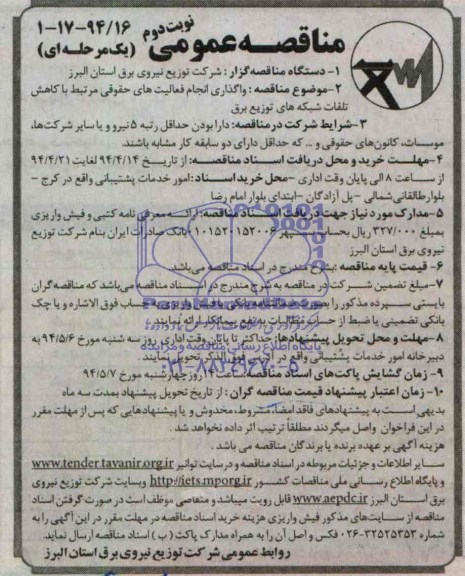 مناقصه عمومی نوبت دوم ۱-۱۷-۹۴/۱۶
(یک مرحله ای)
۱- دستگاه مناقصه گزار : شرکت توزیع نیروی برق استان البرز
۲-موضوع مناقصه : واگذاری انجام فعالیت های حقوقی مرتبط با کاهش
تلفات شبکه های توزیع برق
۳-شرایط شرکت در مناقصه: دارا بودن حداقل رتبه ۵ نیرو و یا سایر شرکت‌ها،
موسسات، کانون‌های حقوقی و ... که حداقل دارای دو سابقه کار مشابه باشند.
۴-مهلت خرید و محل دریافت اسناد مناقصه: از تاریخ ۹۴/۴/۱۴ لغایت ۹۴/۴/۲۱
از ساعت ۸ الی پایان وقت اداری - محل خرید اسناد: امور خدمات پشتیبانی واقع در کرج -
بلوار طالقانی شمالی - پل آزادگان - ابتدای بلوار امام رضا
۵- مدارک مورد نیاز جهت دریافت اسناد مناقصه: ارائه معرفی نامه کتبی و فیش واریزی
بمبلغ ۳۲۷/۰۰۰ ریال بحساب سپهر ۰۱۰۱۵۲۰۱۵۲۰۰۶ بانک صادرات ایران بنام شرکت توزیع
نیروی برق استان البرز
۶- قیمت پایه مناقصه : بشرح مندرج در اسناد مناقصه می‌باشد.
۷-مبلغ تضمین شرکت در مناقصه به شرح مندرج در اسناد مناقصه می‌باشد که مناقصه گران
بایستی سپرده مذکور را بصورت ضمانتنامه بانکی یا فیش واریزی بحساب فوق الاشاره و یا چک
بانکی تضمینی یا ضبط از حساب مطالبات به نفع دستگاه ارائه نمایند.
۸-مهلت و محل تحویل پیشنهادها: حداکثر تا پایان وقت اداری روز سه شنبه مورخ ۹۴/۵/۶ به
دبیرخانه امور خدمات پشتیبانی واقع در آدرس فوق الذکر تحویل نمایند.
۹- زمان گشایش پاکت‌های اسناد مناقصه: ساعت ۱۴ روز چهارشنبه مورخ ۹۴/۵/۷
۱۰- زمان اعتبار پیشنهاد قیمت مناقصه گران : از تاریخ تحویل پیشنهاد بمدت سه ماه
بدیهی است به پیشنهادهای فاقد امضا، مشروط، مخدوش و یا پیشنهادهایی که پس از مهلت مقرر
در این فراخوان واصل میگردند مطلقاً ترتیب اثر داده نخواهد شد .
هزینه آگهی بر عهده برنده یا برندگان مناقصه می باشد .
سایر اطلاعات و جزئیات مربوطه در اسناد مناقصه و در سایت توانیر www.tender.tavanir.org.ir
و پایگاه اطلاع رسانی ملی مناقصات کشور http://iets.mporg.ir وبسایت شرکت توزیع نیروی
برق استان البرز www.aepdc.ir قابل رویت میباشد و متقاضی موظف است در صورت گرفتن اسناد
مناقصه از سایت‌های مذکور فیش واریزی هزینه خرید اسناد مناقصه در مهلت مقرر در این آگهی را به
شماره ۳۲۵۲۵۳۵۳-۰۲۶ فکس و اصل آن را به همراه مدارک پاکت ( ب ) اسناد مناقصه ارسال نماید.
روابط عمومی شرکت توزیع نیروی برق استان البرز
پایگاه اطلاع رسانی مناقصه و مزایده